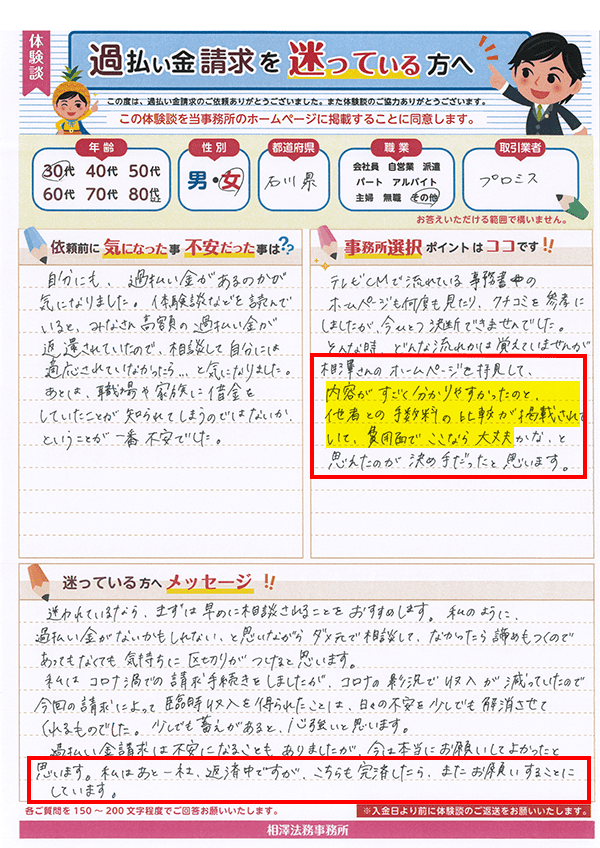 体験談
過払い金請求を迷っている方へ
この度は、過払い金請求のご依頼ありがとうございました。また体験談のご協力ありがとうございます。
この体験談を当事務所のホームページに掲載することに同意します。
年齢
30代 40代 50代
60代 70代 80代以上
性別
男・女
都道府県
石川県
職業
会社員 自営業 派遣
パート アルバイト
主婦 無職 その他
取引業者
プロミス
お答えいただける範囲で構いません。
依頼前に気になった事 不安だった事は??
自分にも、過払い金があるのかが
気になりました。体験談などを読んで
いると、みなさん高額の過払い金が
返還されていたので、相談して自分には
適応されていなかったら…と気になりました。
あとは、職場や家族に借金を
していたことが知られてしまうのではないか、
ということが一番不安でした。
事務所選択ポイントはココです!!
テレビCMで流れている事務書の
ホームページも何度も見たり、クチコミを参考に
しましたが、今ひとつ決断できませんでした。
そんな時、どんな流れかは覚えていませんが
相澤さんのホームページを拝見して、
内容がすごく分かりやすかったのと、
他者との手数料の比較が掲載されて
いて、負囲面でここなら大丈夫かな、と
思えたのが決め手だったと思います。
迷っている方へメッセージ!!
迷われているなら、まずは早めに相談されることをおすすめします。私のように、
過払い金がないかもしれない、と思いながらダメ元で相談して、なかったら諦めもつくので
あってもなくても気持ちに区切りがつけると思います。
私はコロナ渦での請求手続きをしましたが、コロナの影況で収入が減っていたので
今回の請求によって臨時収入を得られたことは、日々の不安を少しでも解消させて
くれるものでした。少しでも蓄えがあると、心強いと思います。
過払い金請求は不安になることもありましたが、今は本当にお願いしてよかったと
思います。私はあと一社、返済中ですが、こちらも完済したら、またお願いすることに
しています。
各ご質問を150～200文字程度でご回答お願いいたします。
※入金日より前に体験談のご返送をお願いいたします。
相澤法務事務所